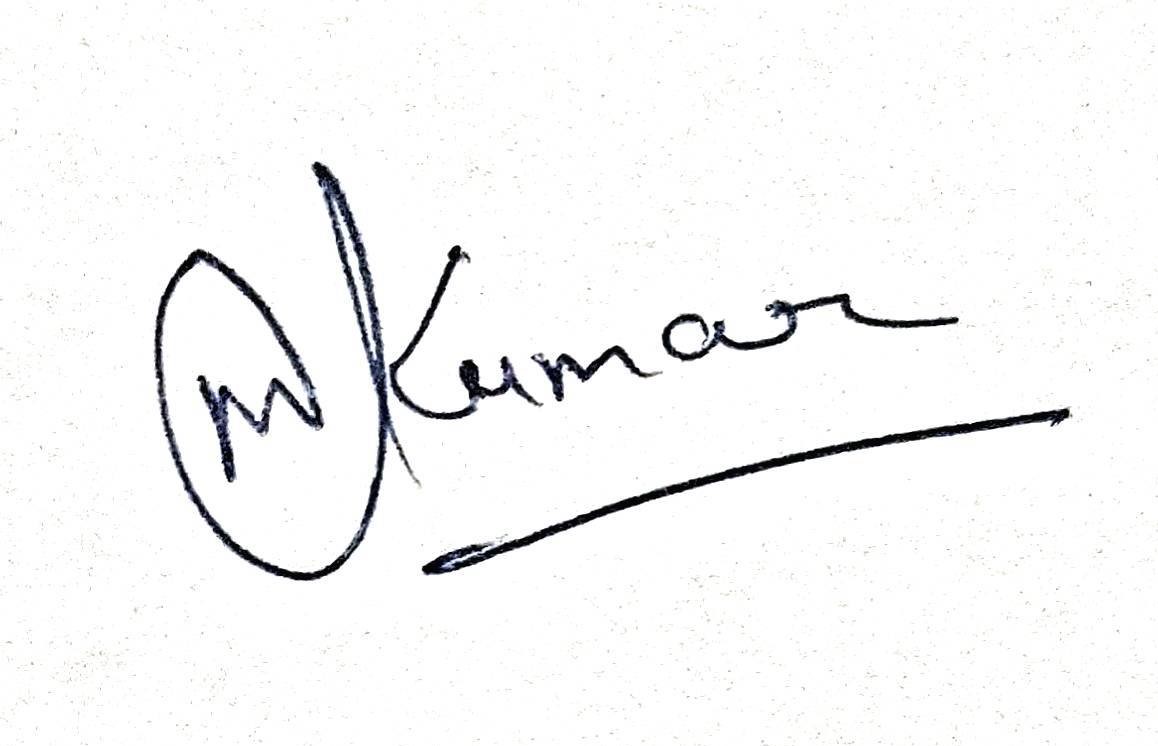 M Kumar